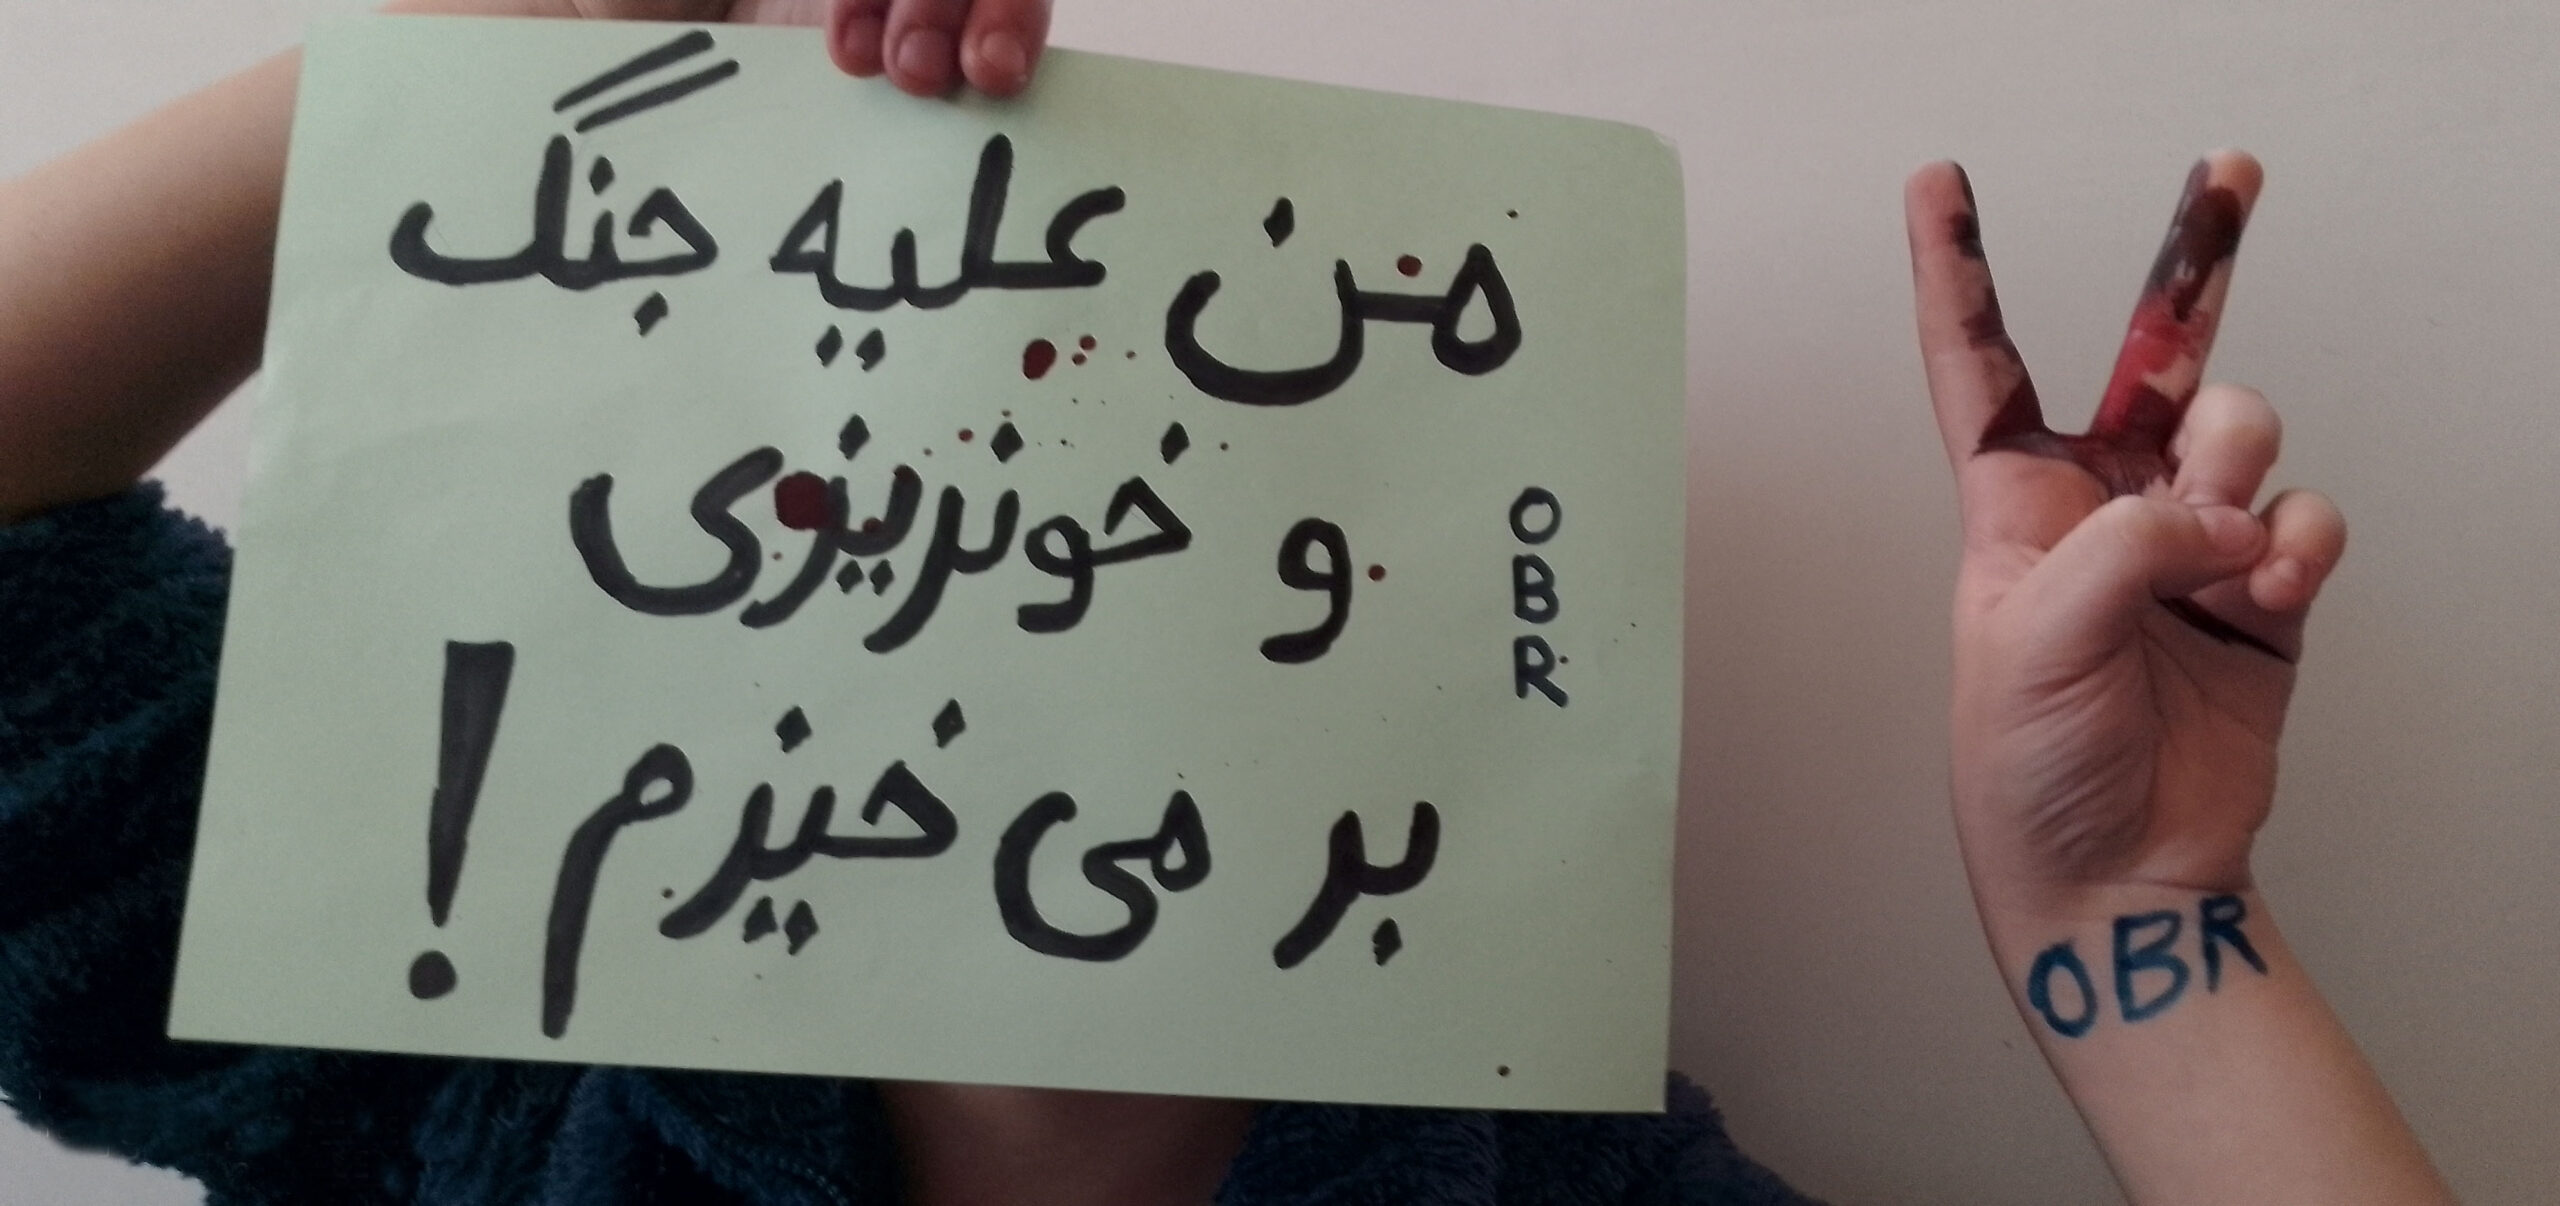 من علیه جنگ
و خونریزی
بر می خیزم!
OBR
OBR